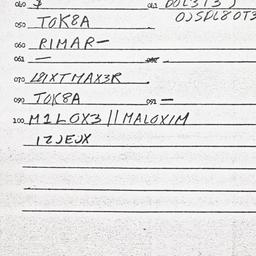 040 $ 043 DOL3T3)
OJSDL8OT3
050 TOK8A
060 RIMAR-
061 —
070 L8IXTMAX3R
090 TOK8A 091 —
100 M1LOX3//MALOXIM
IZJEJX